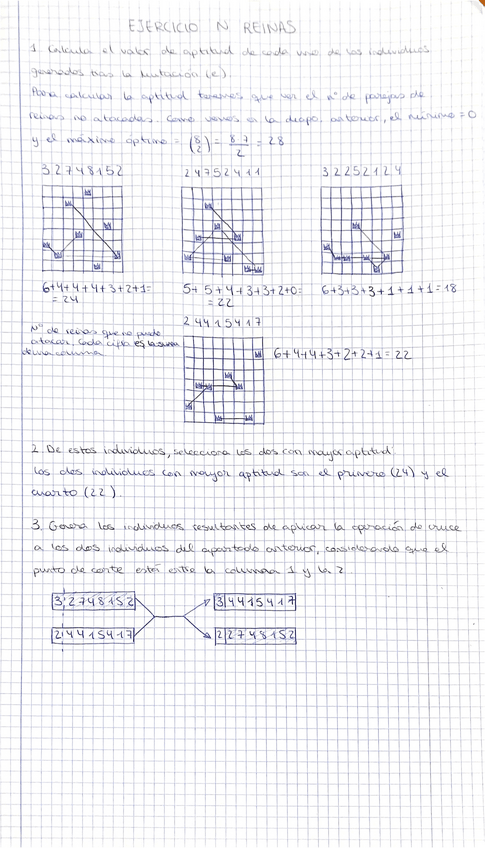 EJERCICIO N REINAS
1. Calcula el valor de aptitud de cada uno de los individuos
generados tras la mutación (e).
Para calcular la aptitud tenemos que ver el nº de parejas de
reinas no atacadas. Como vemos en la diapo. anterior, el mínimo = 0
y el máximo óptimo = (8 2) = 8·7/2 = 28
3 2 7 4 8 1 5 2 2 4 7 5 2 4 1 1 3 2 2 5 2 1 2 4
6+4+4+4+3+2+1= 5+5+4+3+3+2+0= 6+3+3+3+1+1+1=18
= 24 = 22
2 4 4 1 5 4 1 7
Nº de reinas que no puede
atacar, cada cifra es la suma
de una columna
6+4+4+3+2+2+1 = 22
2. De estos individuos, selecciona los dos con mayor aptitud:
Los dos individuos con mayor aptitud son el primero (24) y el
cuarto (22).
3. Genera los individuos resultantes de aplicar la operación de cruce
a los dos individuos del apartado anterior, considerando que el
punto de corte está entre la columna 1 y la 2.
3 2 7 4 8 1 5 2 3 4 4 1 5 4 1 7
2 4 4 1 5 4 1 7 2 2 7 4 8 1 5 2